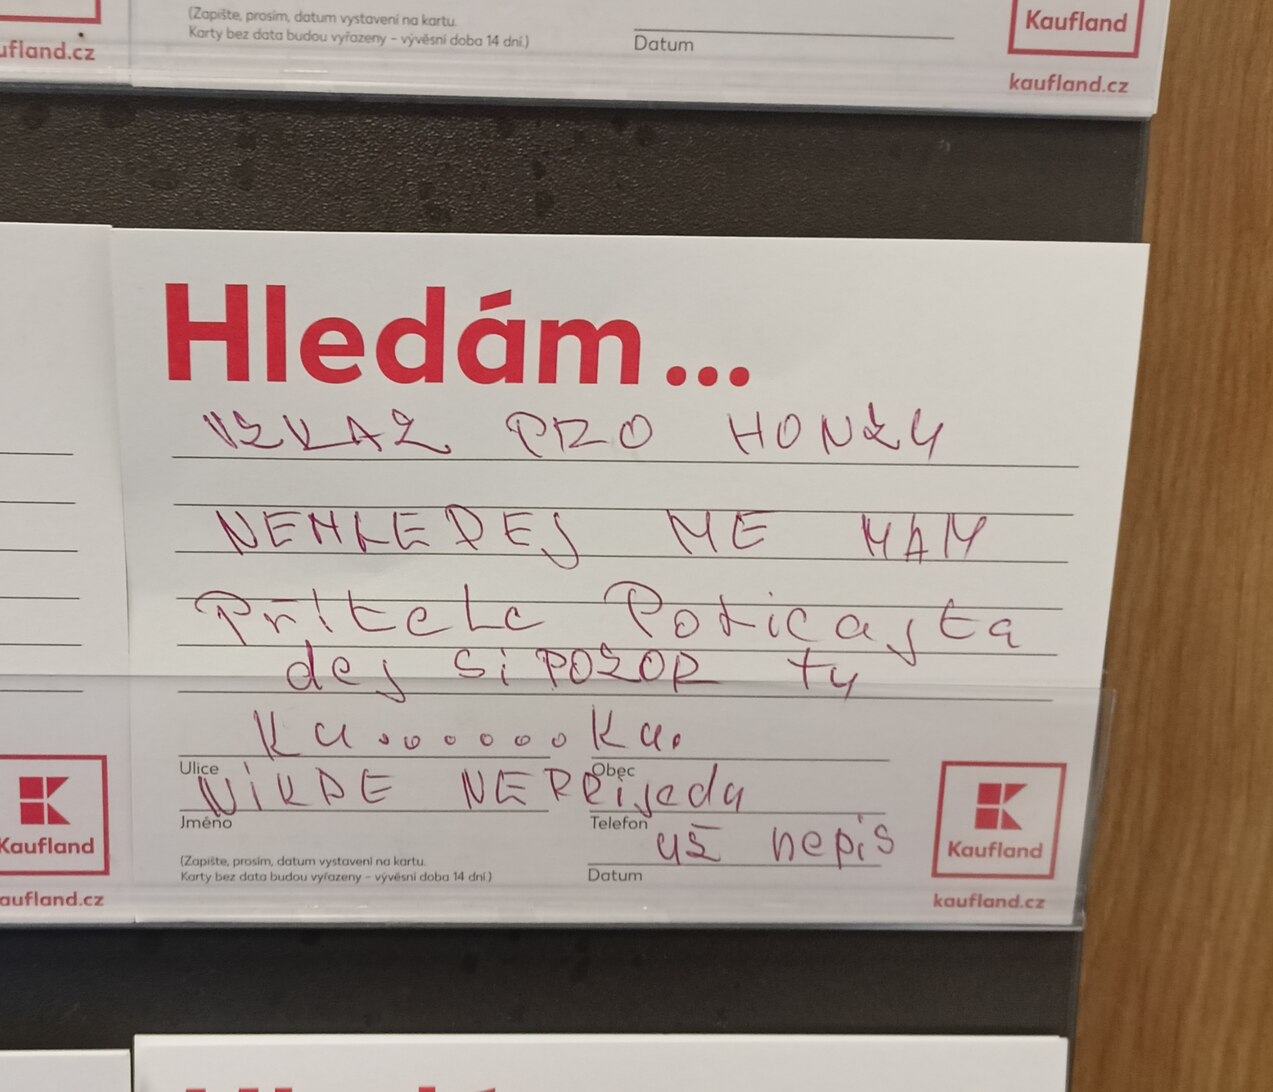 (Zapište, prosím, datum vystavení na kartu.
Karty bez data budou vyřazeny – vývěsní doba 14 dní.)
Datum
Kaufland
kaufland.cz
ufland.cz
Hledám...
VZKAZ PRO HONZU
NEHLEDEJ ME MAM
Přítele Policajta
dej si POZOR ty
Ku......Ku.
Ulice
Obec
NiKDE NEPRijedu
Jméno
Telefon
už nepis
(Zapište, prosím, datum vystavení na kartu.
Karty bez data budou vyřazeny – vývěsní doba 14 dní.)
Datum
Kaufland
kaufland.cz
Kaufland
aufland.cz